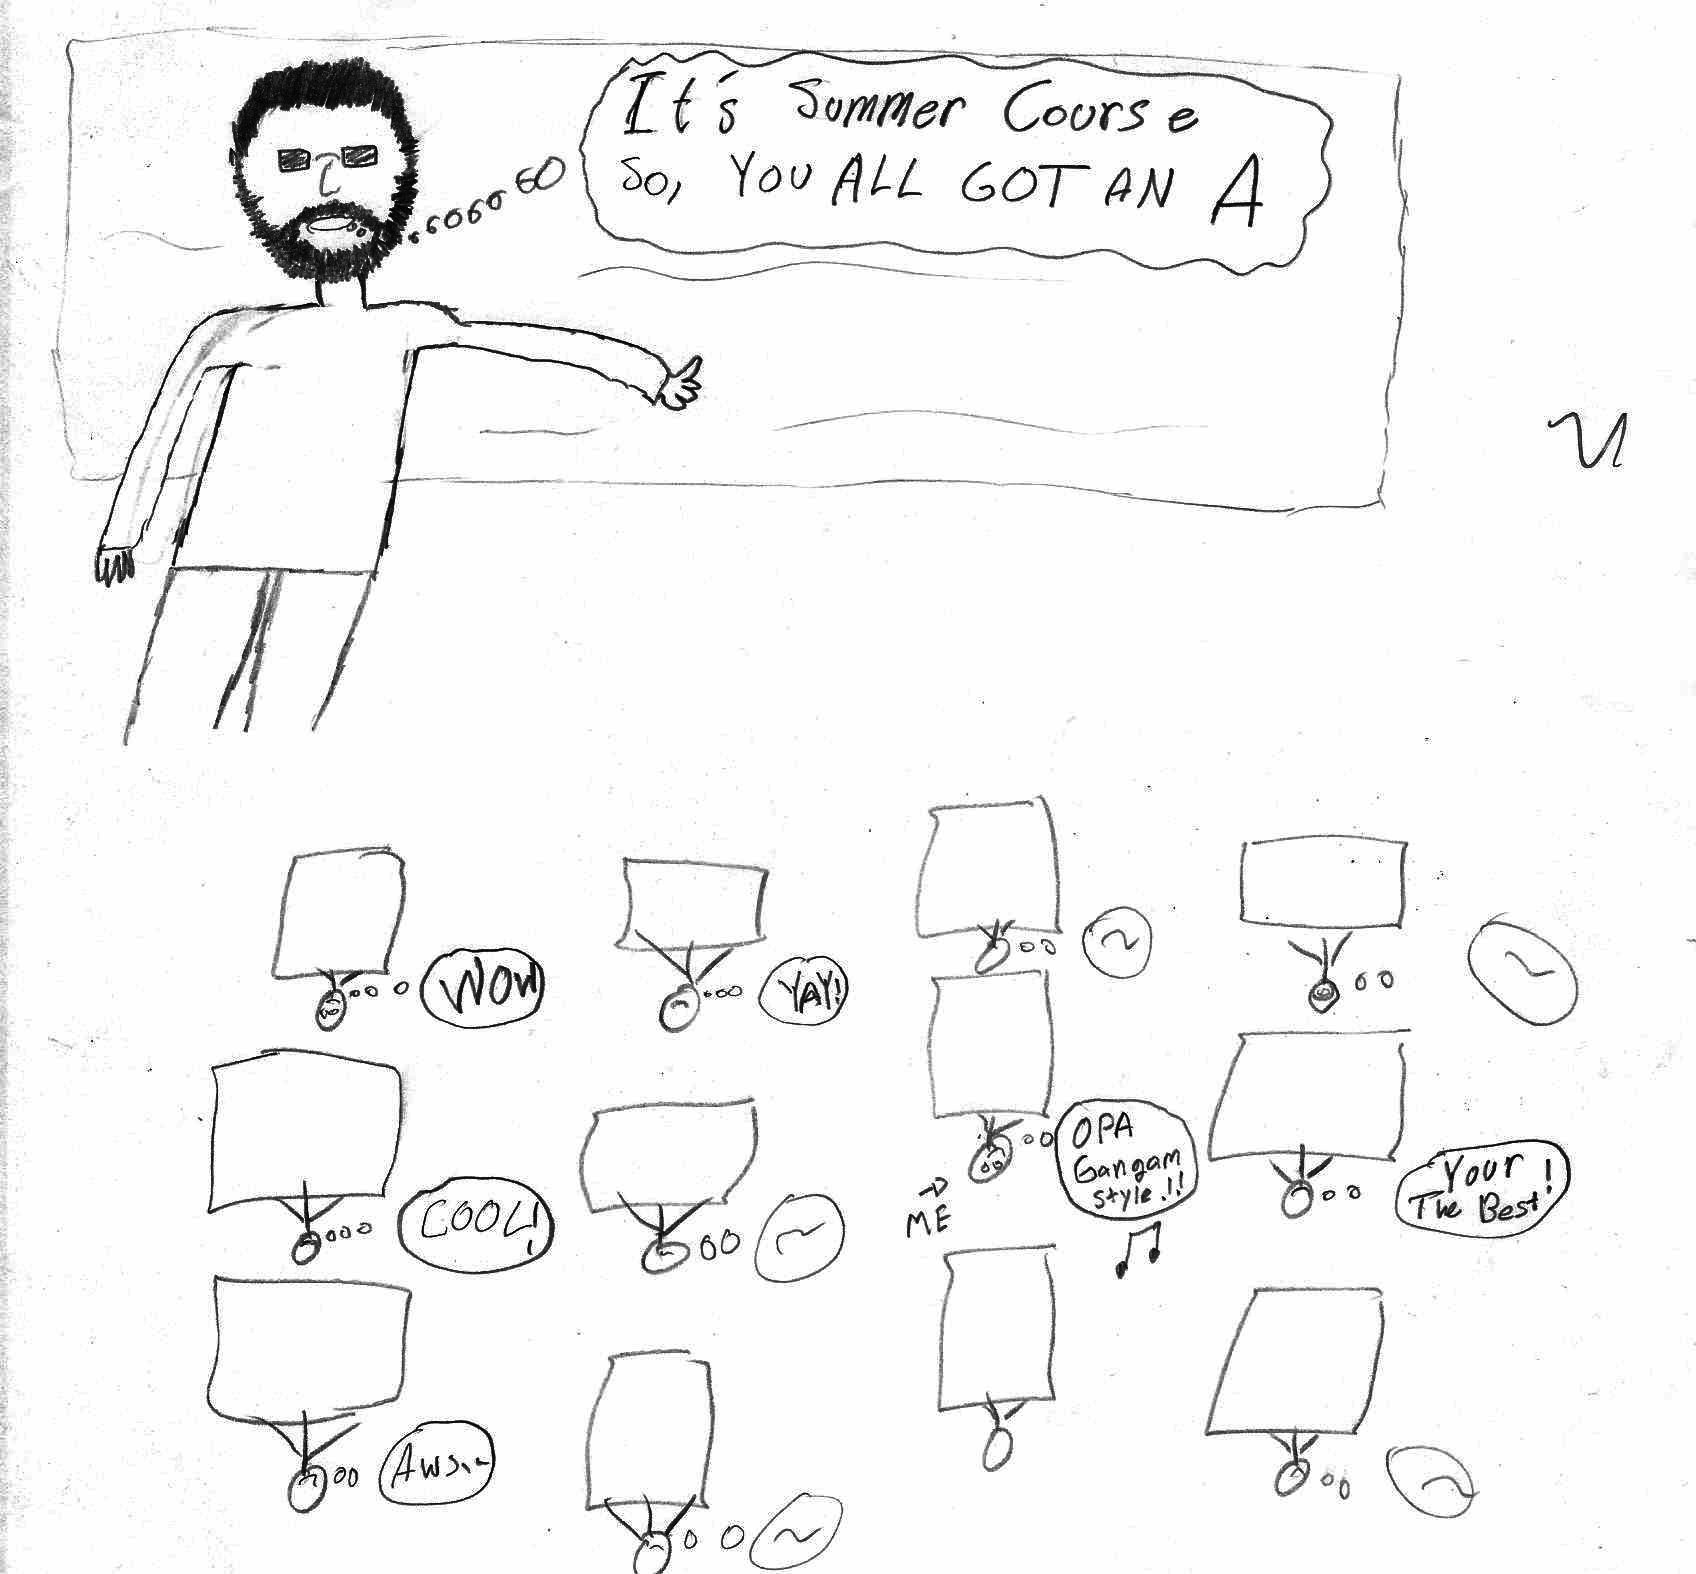 It's Summer Course
So, YOU ALL GOT AN A
WOW
YAY!
COOL!
OPA
Gangam
style.!!
ME
Your
The Best!